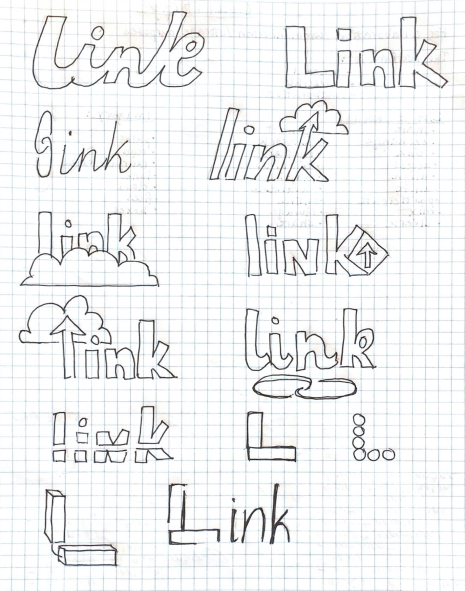 Link Link
link link
link link
link link
link L L
L Link